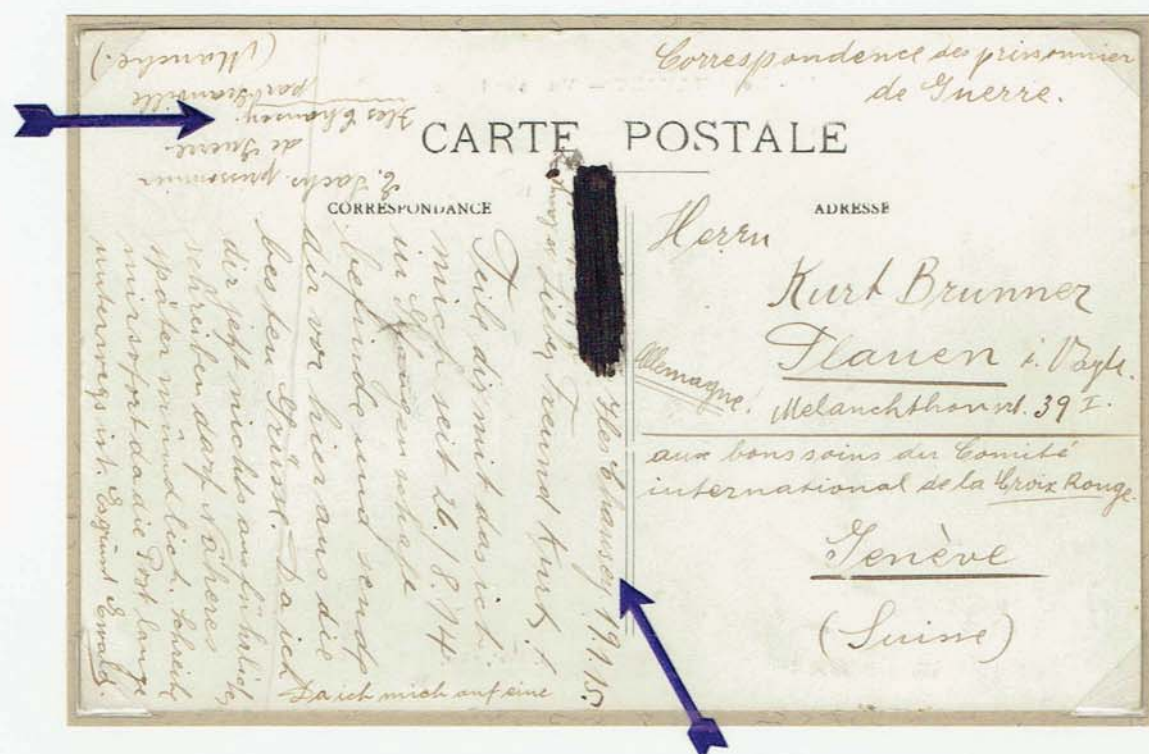 Correspondence des prissonnier
de Guerre.
CARTE POSTALE
CORRESPONDANCE
ADRESSE
Herrn
Kurt Brunner
Plauen i. Vogtl.
Melanchthonstr. 39 I.
Allemagne.
aux bons soins du Comité
international de la Croix Rouge.
Genève
(Suisse)
E. Sachs. prissonnier
de Guerre
Iles Chausey.
par Granville
(Manche.)
Iles Chausey 19.1.15.
Lieber Freund Kurt!
Teile dir mit das ich
mich seit 26./8.14.
in
befinde und sende
dir vor hier aus die
besten Grüsse. Da ich
dir jetzt nichts ausführlich
schreiben darf Näheres
später mündlich. Schreibe
mir sofort da die Post lange
unterwegs ist. Es grüsst Ewald.
Da ich mich auf eine